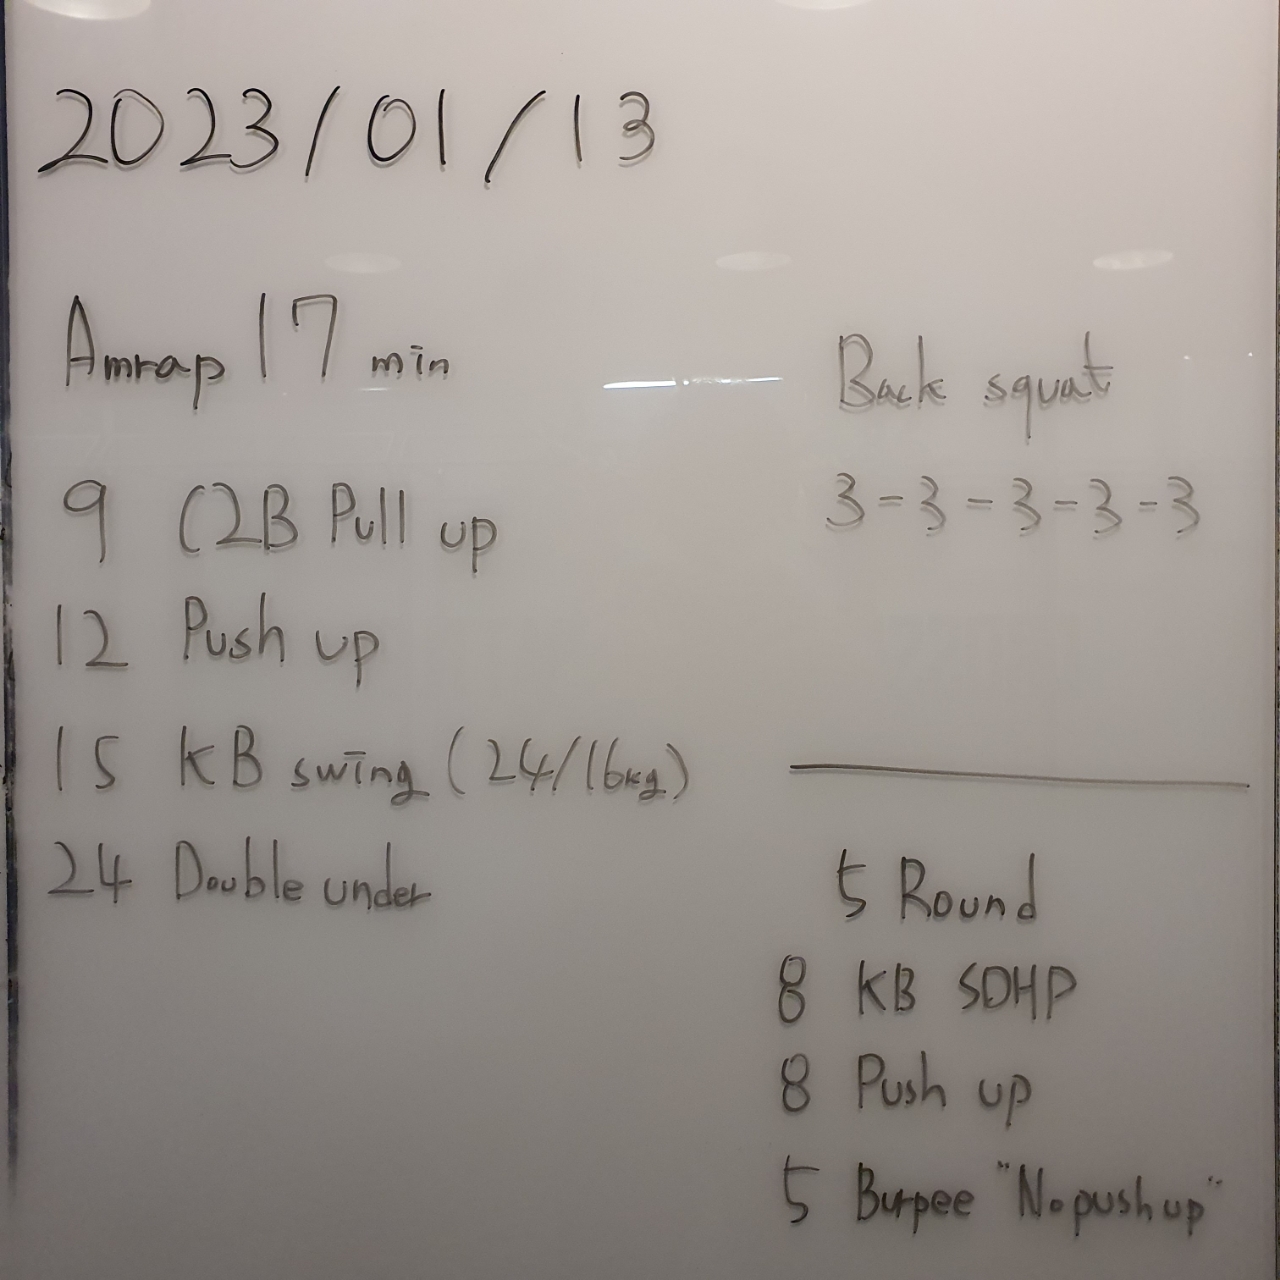 2023/01/13
Amrap 17 min
9 C2B Pull up
12 Push up
15 KB swing (24/16kg)
24 Double under
Back squat
3-3-3-3-3
5 Round
8 KB SDHP
8 Push up
5 Burpee "No push up"